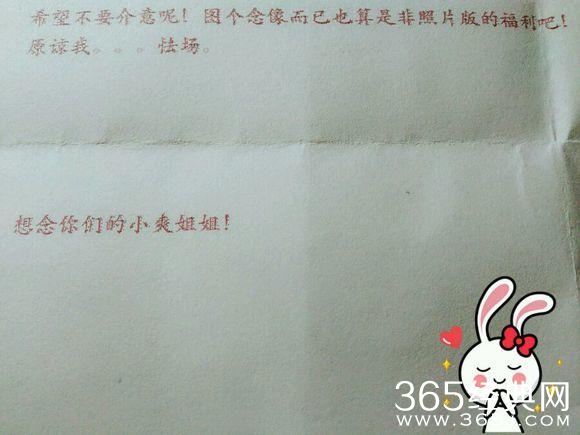 希望不要介意呢！图个念像而已也算是非照片版的福利吧！
原谅我。。。怯场。
想念你们的小爽姐姐！
365经典网